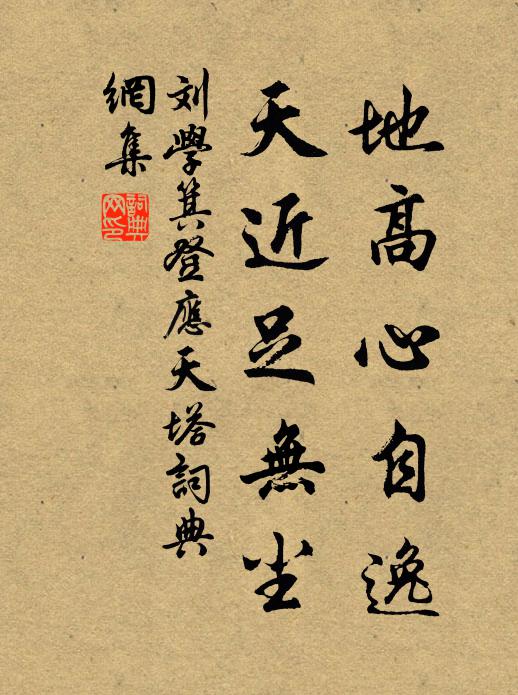 地高心自逸
天近足無尘
刘學箕登應天塔詞典
網集
詞典
网印